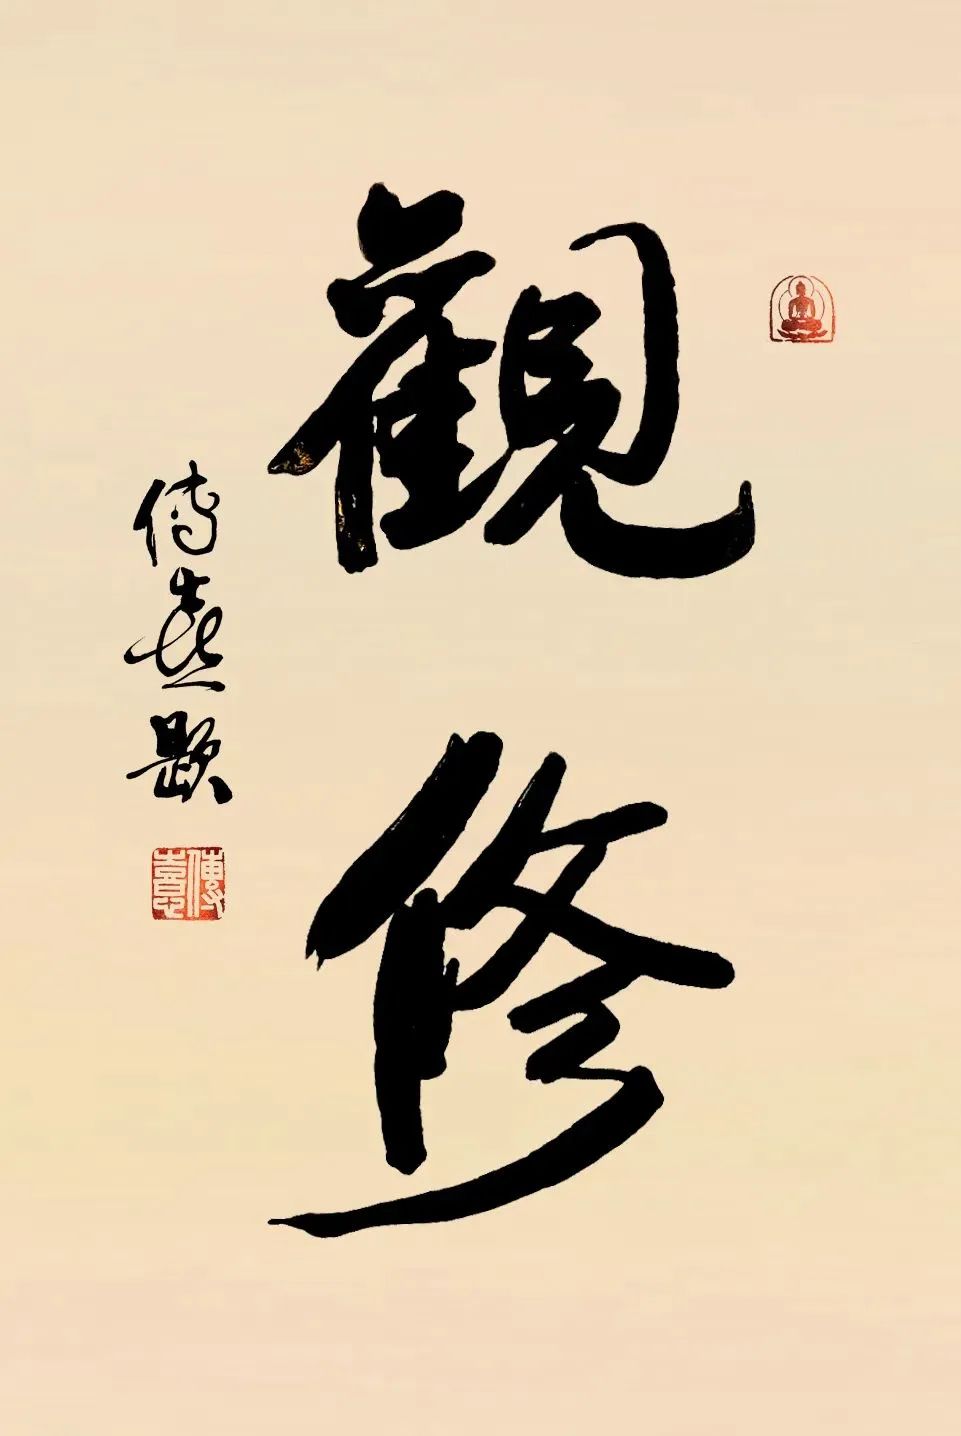 觀修
傳喜題
傳喜